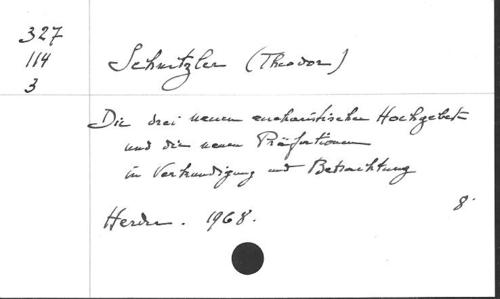 327
114
3
Schnitzler (Theodor)
Die drei neuen eucharistischen Hochgebete
und die neuen Präfationen
in Verkündigung und Betrachtung
8.
Herder. 1968.